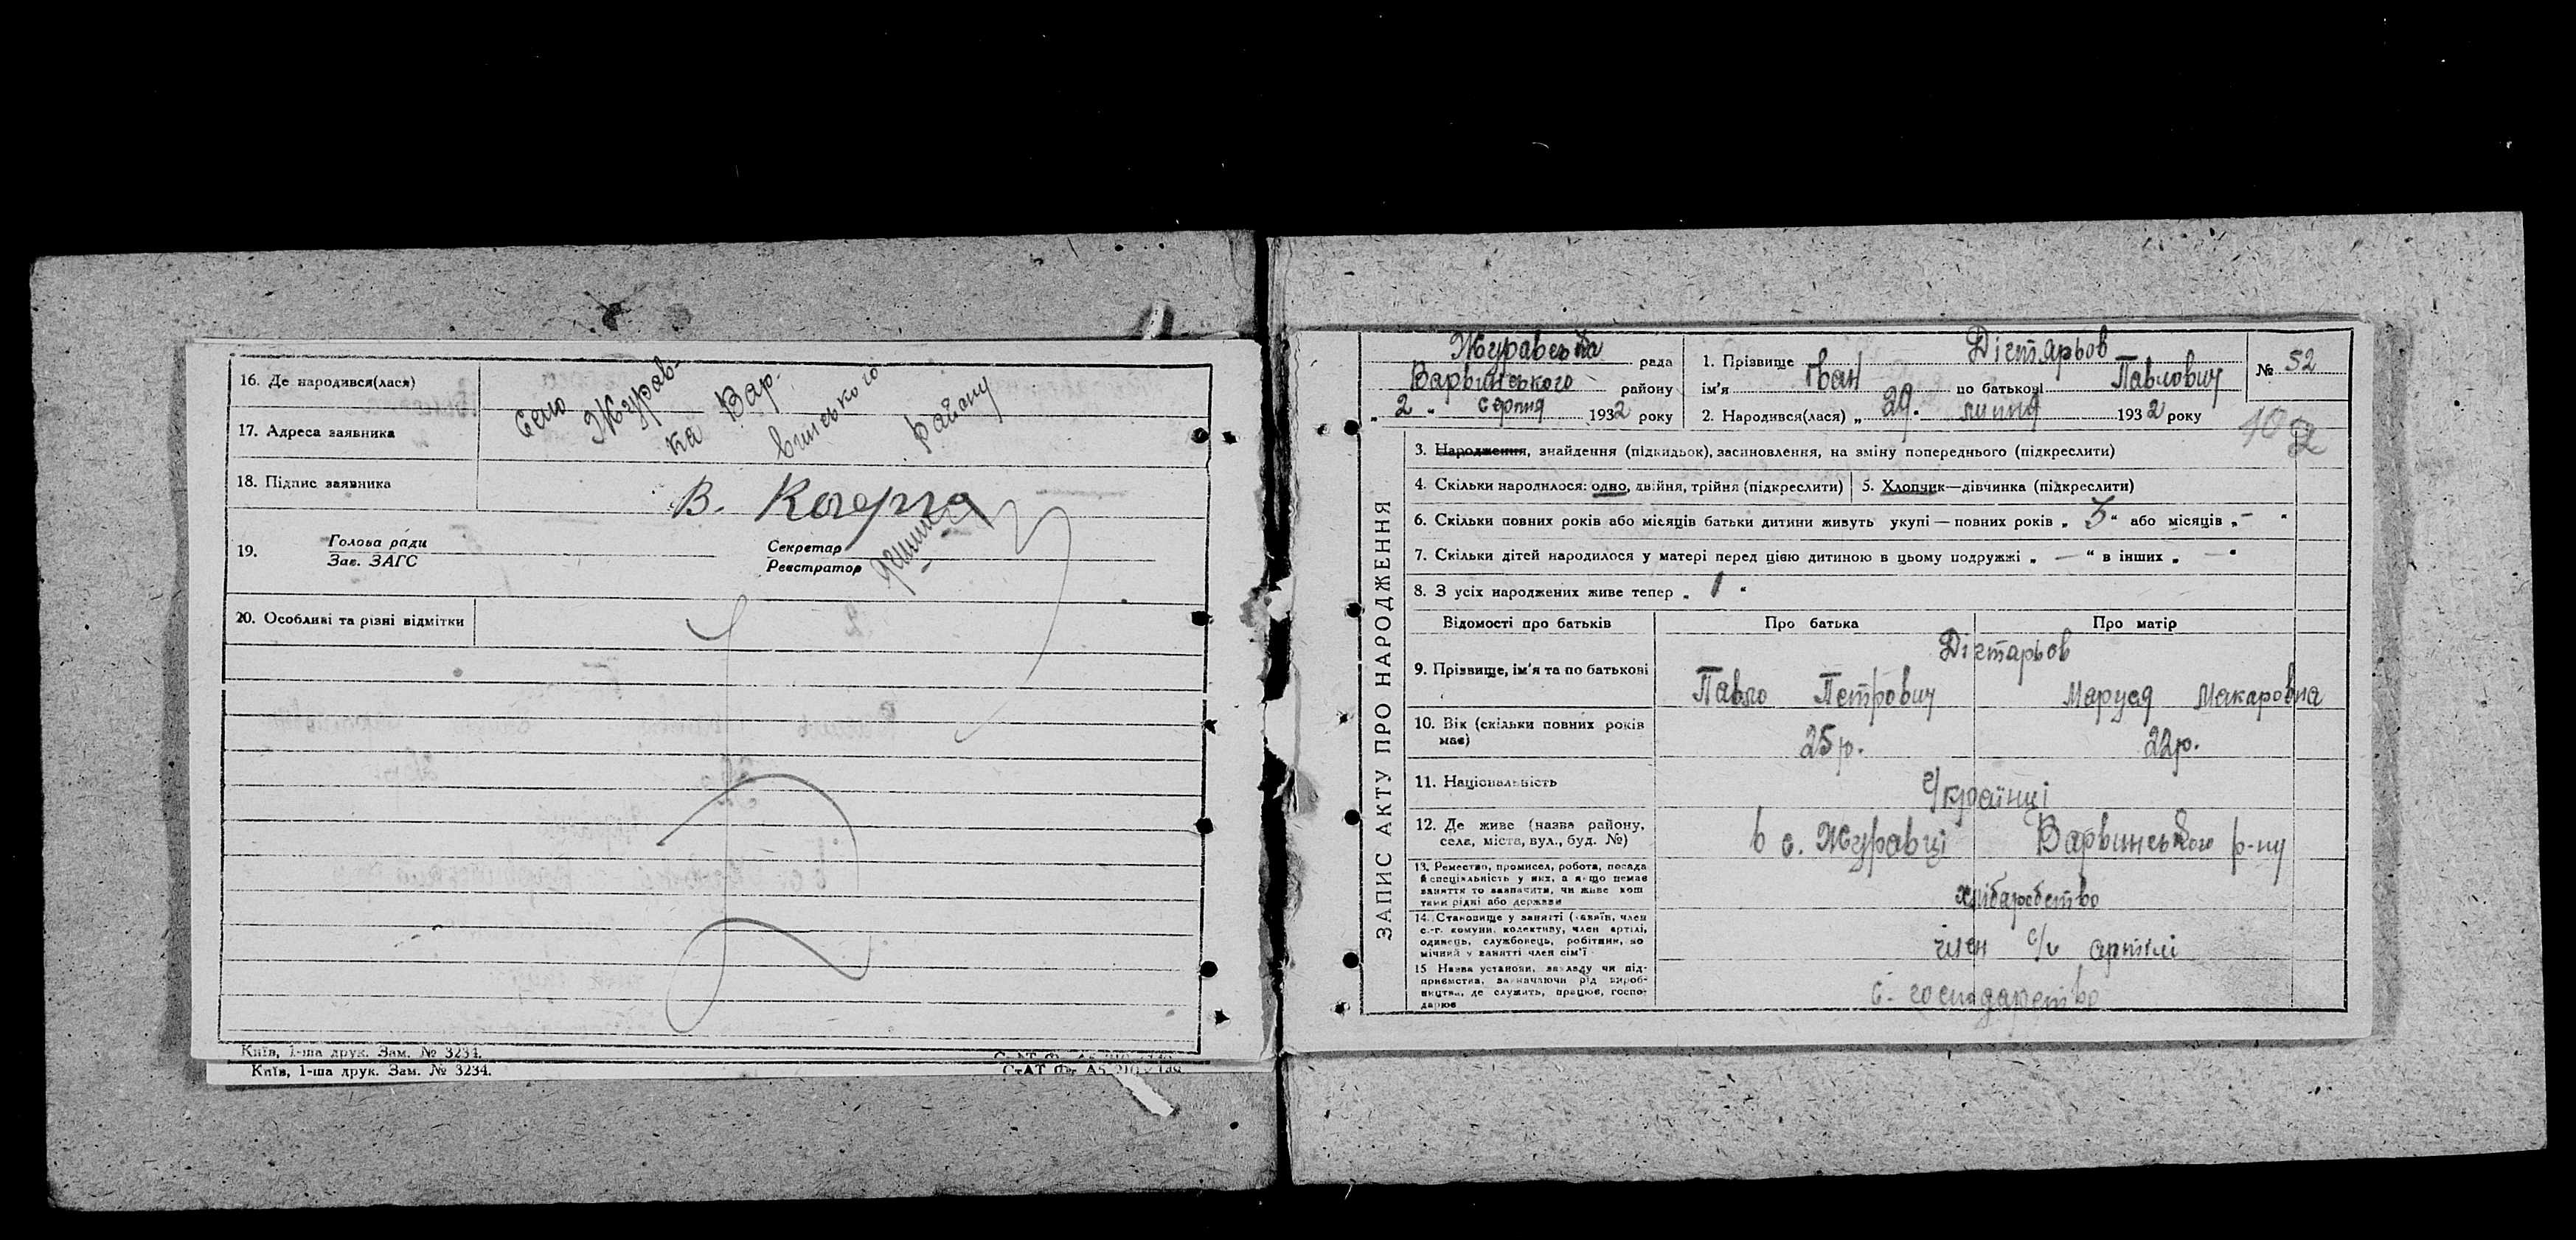 16. Де народився(лася)
Село Журав-
ка Вар-
винського
району
17. Адреса заявника
18. Підпис заявника
В.
19. Голова ради
Зав. ЗАГС
Секретар
Реєстратор
20. Особливі та різні відмітки
Київ, 1-ша друк. Зам. № 3234.
Київ, 1-ша друк. Зам. № 3234.
ЗАПИС АКТУ ПРО НАРОДЖЕННЯ
Журавська рада
Варвинського району
„ 2 „ серпня 1932 року
1. Прізвище Дігтярьов
ім'я Іван по батькові Павлович
2. Народився(лася) „ 29. липня 1932 року
№ 52
3. Народження, знайдення (підкидьок), засиновлення, на зміну попереднього (підкреслити)
4. Скільки народилося: одно, двійня, трійня (підкреслити)
5. Хлопчик—дівчинка (підкреслити)
6. Скільки повних років або місяців батьки дитини живуть укупі — повних років „ 5 “ або місяців „ – “
7. Скільки дітей народилося у матері перед цією дитиною в цьому подружжі „ — “ в інших „ — “
8. З усіх народжених живе тепер „ 1 “
Відомості про батьків Про батька Про матір
9. Прізвище, ім'я та по батькові
Дігтярьов
Павло Петрович Маруся Макаровна
10. Вік (скільки повних років
має)
25 р. 22 р.
11. Національність
Українці
12. Де живе (назва району,
села, міста, вул., буд. №)
в с. Журавці Варвинського р-ну
13. Ремество, промисел, робота, посада
й спеціяльність у них, а якщо немає
заняття то зазначити, чи живе кош
тами рідні або держави
хліборобство
14. Становище у занятті (хазяїн, член
с.-г. комуни, колективу, член артілі,
одинець, службовець, робітник, по
мічний у занятті член сім'ї
член с/г артілі
15 Назва установи, закладу чи під-
приємства, зазначаючи рід вироб-
ництва, де служить, працює, госпо-
дарює
с. господарство